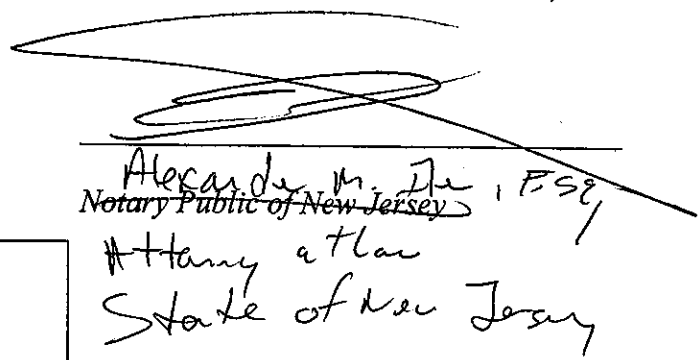 Alexander M. , Esq,
Notary Public of New Jersey
Attorney at law
State of New Jersey